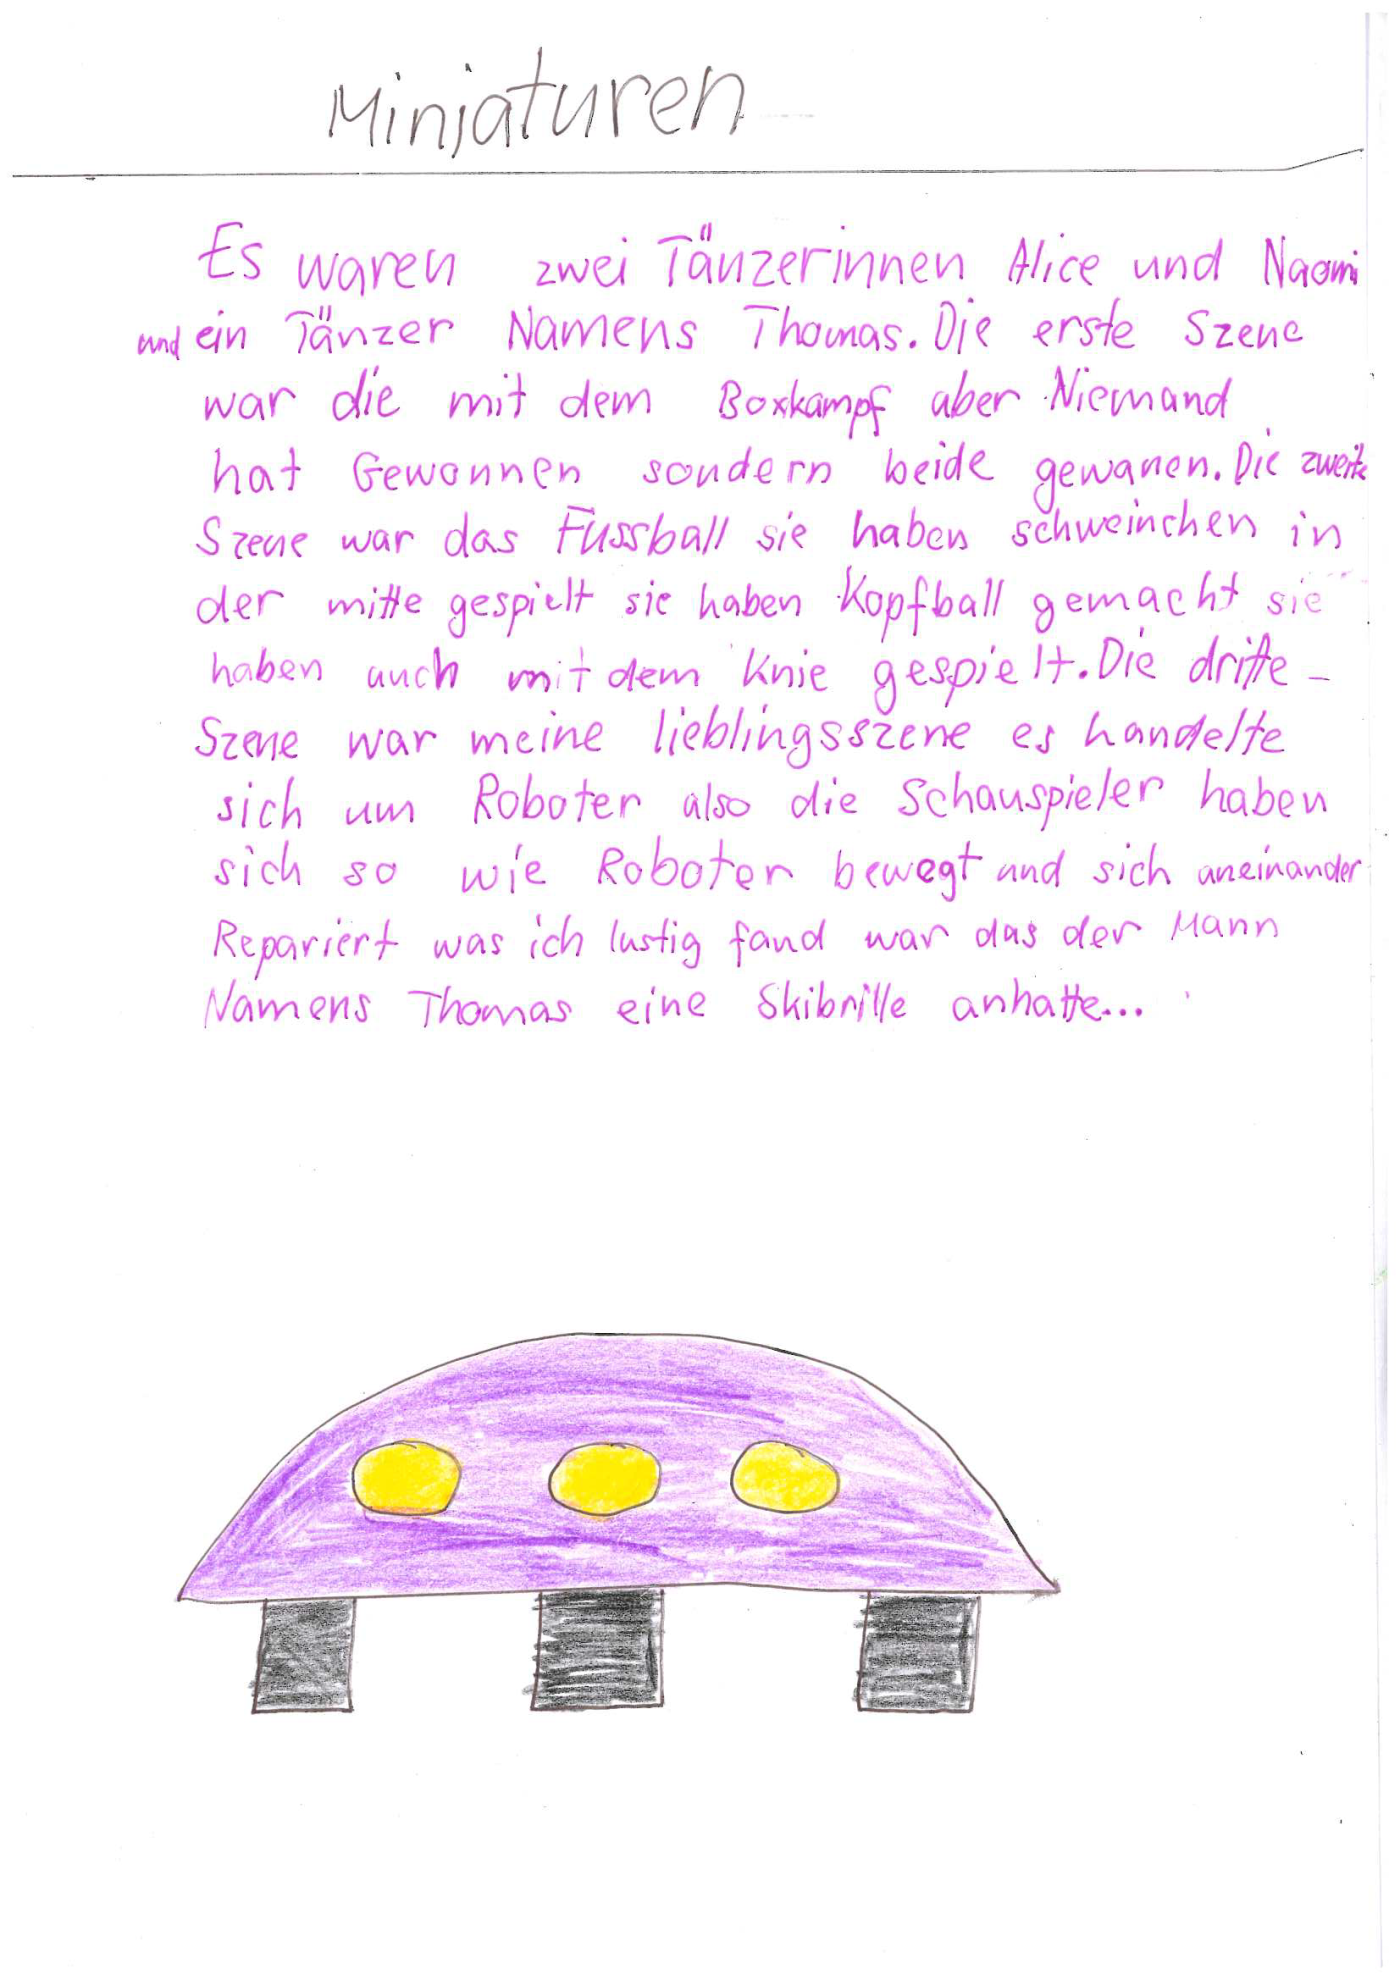 Minjaturen
Es waren zwei Tänzerinnen Alice und Naomi
und ein Tänzer Namens Thomas. Die erste Szene
war die mit dem Boxkampf aber Niemand
hat Gewonnen sondern beide gewanen. Die zweite
Szene war das Fussball sie haben schweinchen in
der mitte gespielt sie haben Kopfball gemacht sie
haben auch mit dem Knie gespielt. Die dritte
Szene war meine lieblingsszene es handelte
sich um Roboter also die Schauspieler haben
sich so wie Roboter bewegt und sich aneinander
Repariert was ich lustig fand war das der Mann
Namens Thomas eine Skibrille anhatte...